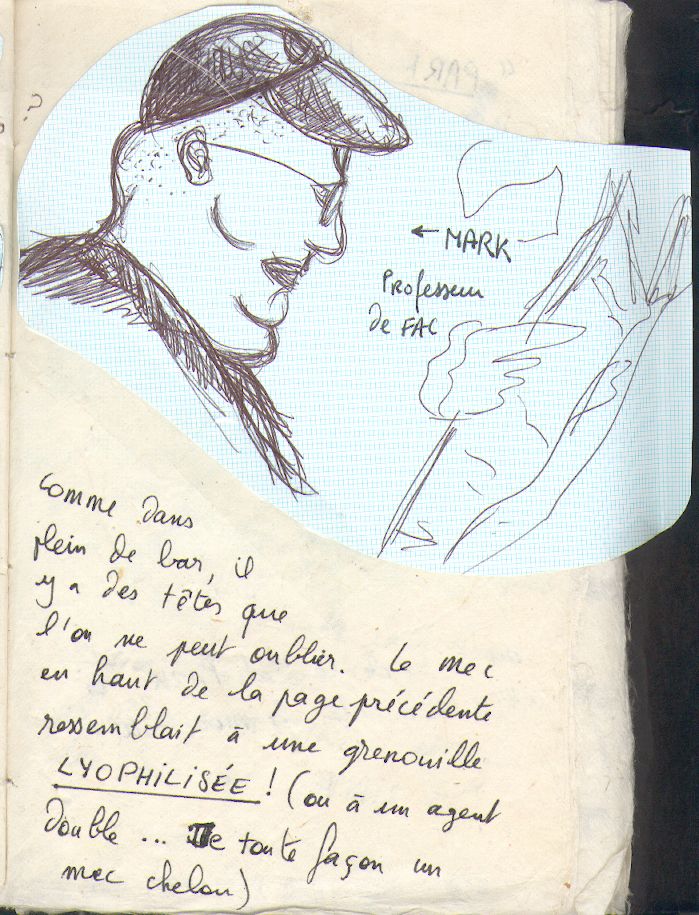 ?
← MARK
Professeur
de FAC
Comme dans
plein de bar, il
y a des têtes que
l'on ne peut oublier. Le mec
en haut de la page précédente
ressemblait à une grenouille
LYOPHILISÉE ! (ou à un agent
double ... De toute façon un
mec chelou)